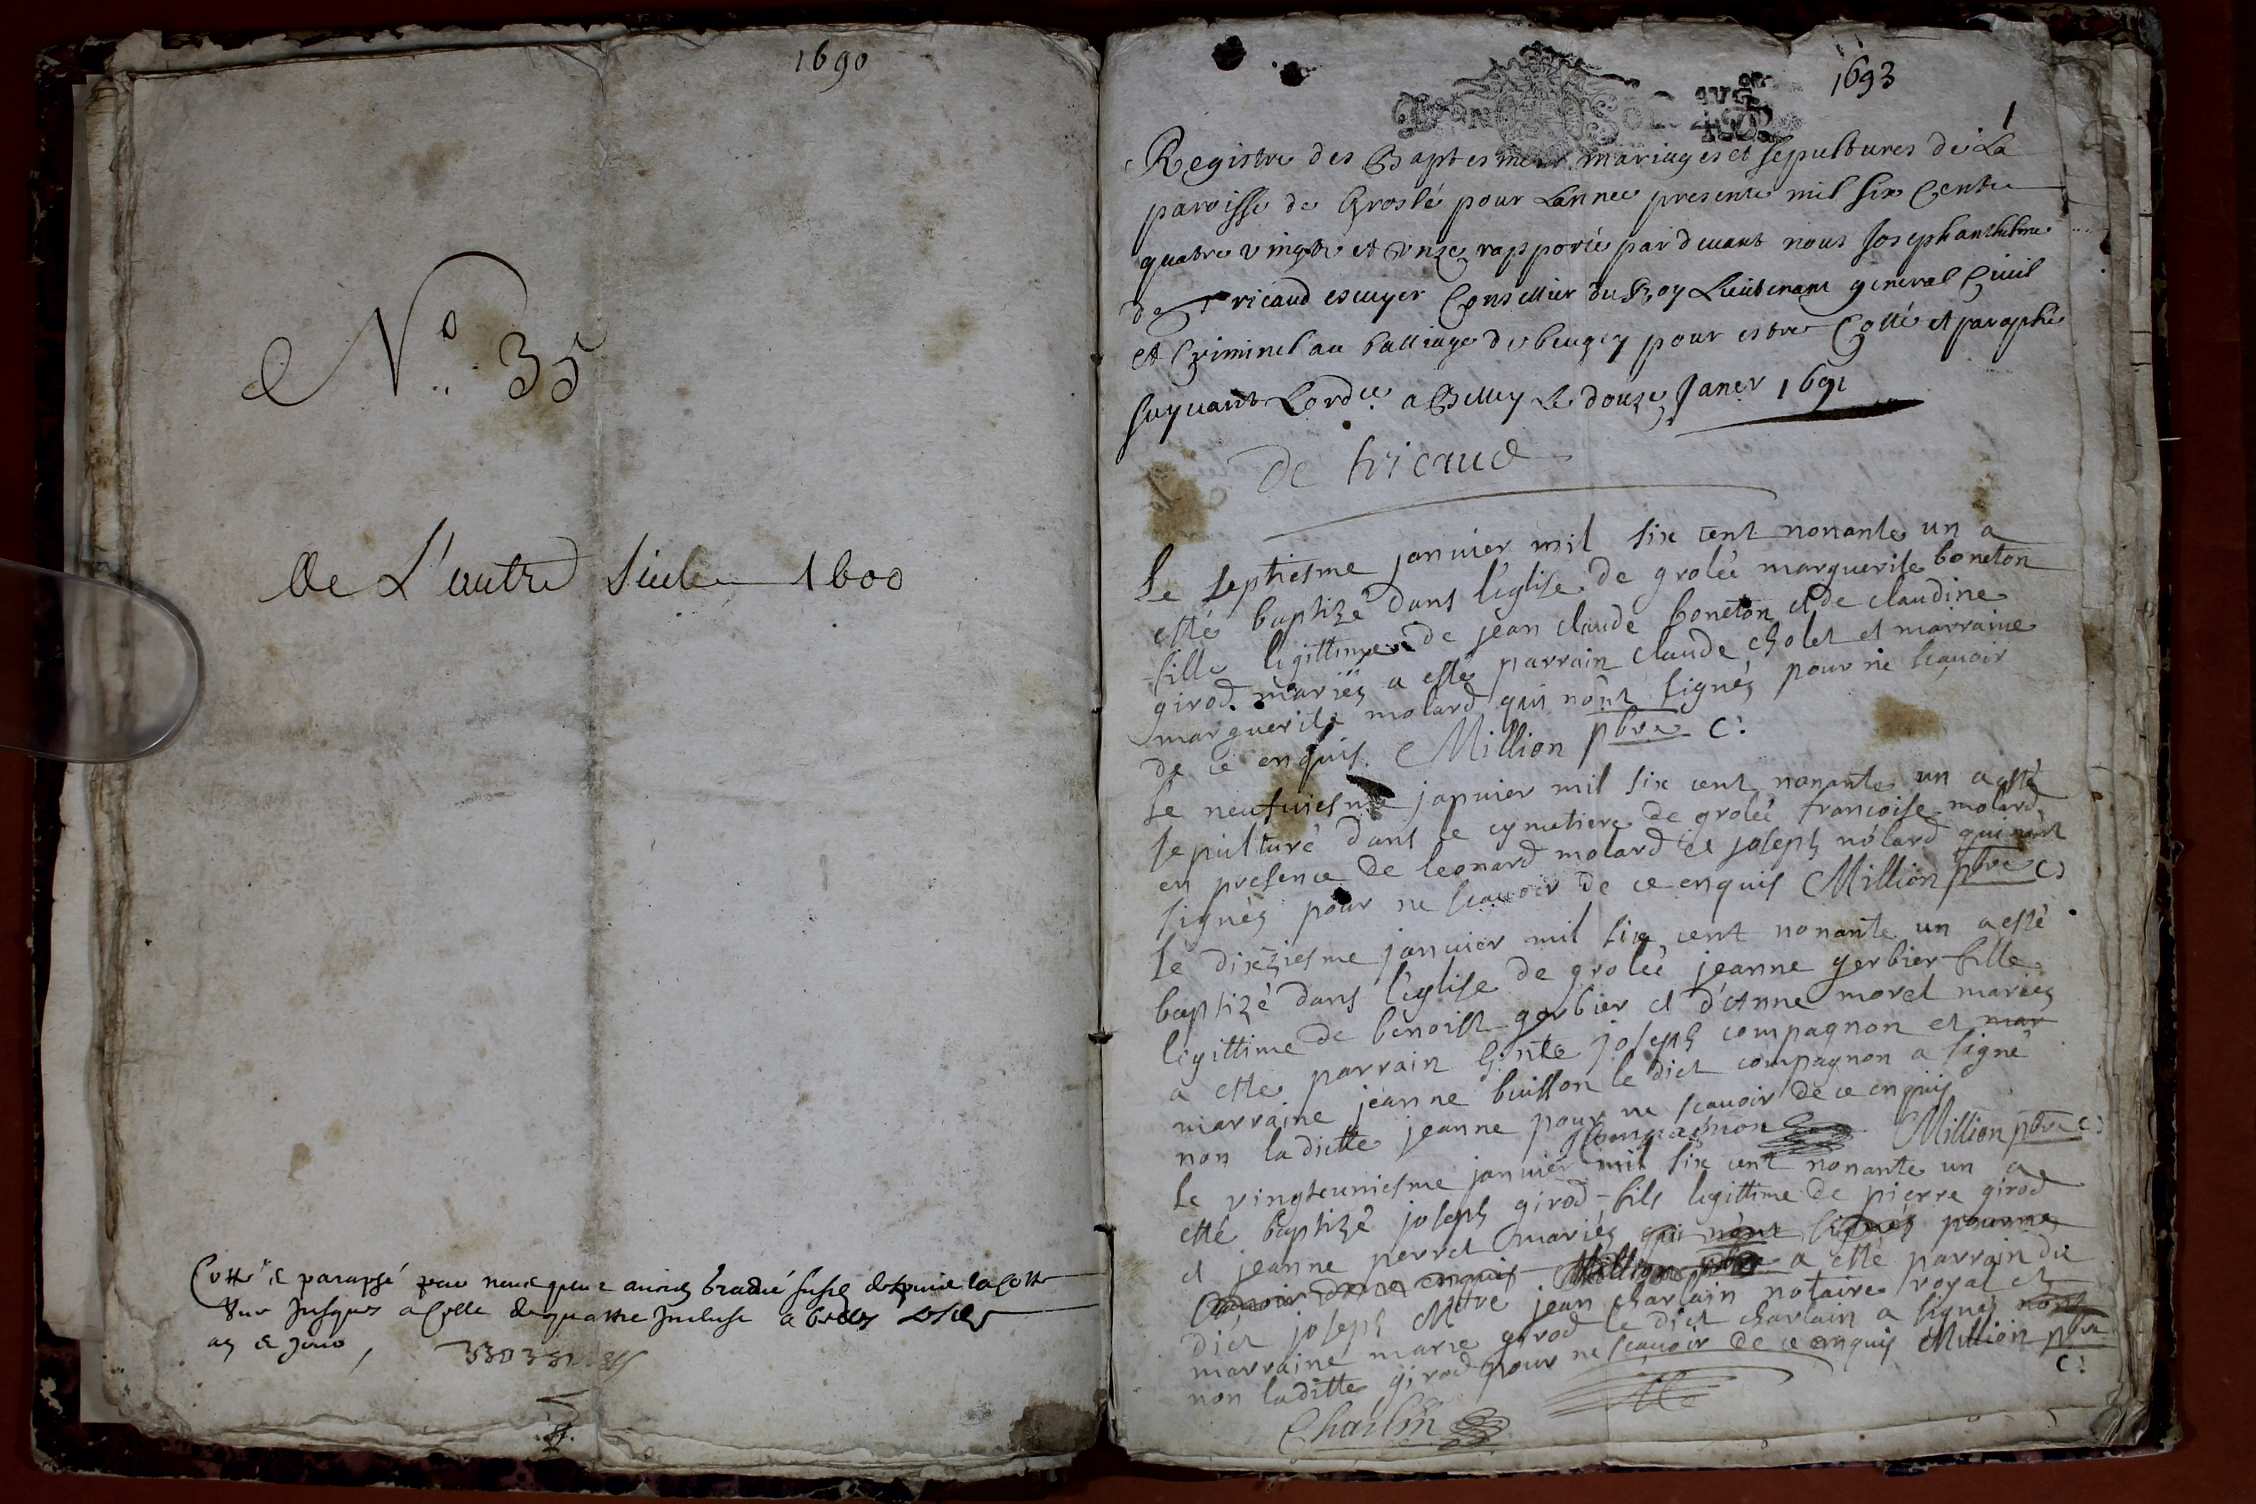 1690
N.o 35
De L'autre Siecle 1600
Cotté & paraphé par nous
une jusques a celle de quattre Incluse a
1693
1
Registre des Baptesmes mariages et sepultures de La
paroisse de Groslé pour Lannee presente mil six Cents
quatre vingts et Unze rapporté pardevant nous Joseph anthelme
de Tricaud escuyer Conseiller du Roy Lieutenant general Civil
et Criminel au balliage de beugey pour estre Cotté et paraphé
suyvant Lord.ce a Belley Le douze Janer 1691
De tricaud
Le septiesme janvier mil six cent nonante un a
esté baptizé dans l'eglise de grolée marguerite boneton
fille legittime de jean claude boneton et de claudine
girod mariés a esté parrain claude cholet et marraine
marguerite molard qui nont signés pour ne scavoir
de ce enquis. Million pbre C:
Le neufviesme janvier mil six cent nonante un a esté
sepulturé dans le cymetiere de grolée francoise molard
en presence de leonard molard et joseph molard qui nont
signés pour ne scavoir de ce enquis Million pbre C:
Le dixziesme janvier mil six cent nonante un a esté
baptizé dans l'eglise de grolée jeanne gerbier fille
legittime de benoist gerbier et d'Anne morel mariés
a esté parrain joseph compagnon et mar
marraine jeanne buisson le dict compagnon a signé
non la dicte jeanne pour ne scavoir de ce enquis
Compagnon Million pbre C:
Le vingteuniesme janvier mil six cent nonante un a
esté baptizé joseph girod fils legittime de pierre girod
et jeanne perret mariés qui nont signés pour ne
scavoir de ce enquis Million pbre a esté parrain du
dict joseph Mtre jean charlain notaire royal et
marraine marie girod le dict charlain a signés non
non laditte girod pour ne scavoir de ce enquis Million pbre
C:
Charlin